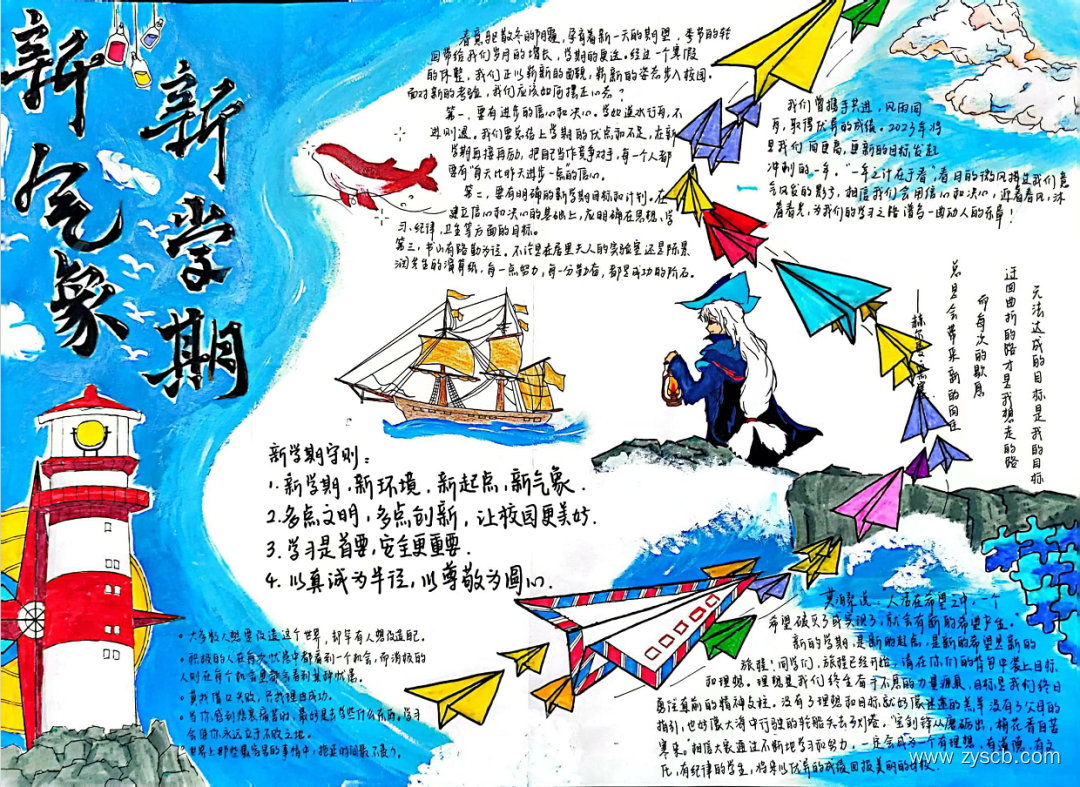 新学期
新气象
春意驱散冬的阴霾，孕育着新一天的期望，季节的转
回带给我们岁月的增长，学期的更迭。经过一个寒假
的休整，我们正以崭新的面貌，崭新的姿态步入校园。
面对新的考验，我们应该如何摆正心态？
第一，要有进步的信心和决心。学如逆水行舟，不
进则退。我们要总结上学期的优点和不足，在新
学期再接再励，把自己当作竞争对手，每一个人都
要有“每天比昨天进步一点”的信心。
第二，要有明确的新学期目标和计划。在
建立信心和决心的基础上，应明确在思想、学
习、纪律、卫生等方面的目标。
第三，书山有路勤为径。不论是在居里夫人的实验室还是陈景
润先生的演算纸，每一点努力，每一分勤奋，都是成功的阶石。
我们曾携手共进，风雨同
舟，取得优异的成绩。2023年将
是我们向更高，更新的目标发起
冲刺的一年。“一年之计在于春”，春日的微风拂过我们意
气风发的影子，相信我们会用信心和决心，迎着春风，沐
着春光，为我们的学习之路谱写一曲动人的乐章！
无法达成的目标是我的目标
迂回曲折的路才是我想走的路
而每次的歇息
总是会带来新的向往
新学期守则：
1.新学期，新环境，新起点，新气象．
2.多点文明，多点创新，让校园更美好．
3.学习是首要，安全更重要．
4.以真诚为半径，以尊敬为圆心．
大多数人想要改造这个世界，却罕有人想改造自己。
积极的人在每一次忧患中都看到一个机会，而消极的
人则在每个机会里都看到某种忧患。
莫找借口失败，只找理由成功。
当你感到悲哀痛苦时，最好是去学些什么东西。学习
会使你永远立于不败之地。
世界上那些最容易的事情中，拖延时间最不费力。
莫泊桑说：人活在希望之中，一个
希望破灭了或实现了，就会有新的希望产生。
新的学期，是新的起点，是新的希望是新的
旅程！同学们，旅程已经开始，请在你们的背包中装上目标
和理想。理想是我们终生奋斗不息的力量源泉，目标是我们终日
奔往直前的精神支柱。没有了理想和目标就好像迷途的羔羊没有了父母的
指引，也好像大海中行驶的轮船失去了灯塔。“宝剑锋从磨砺出，梅花香自苦
寒来。”相信大家通过不断地学习和努力，一定会成为一个有理想、有道德、有文
化、有纪律的学生，将来以优异的成绩回报美丽的学校。
www.zyscb.com